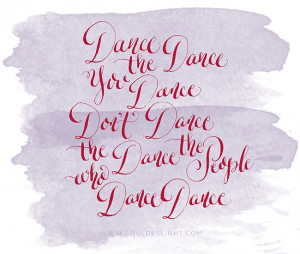 Dance the Dance
You Dance
Don't Dance
the Dance the People
who Dance Dance